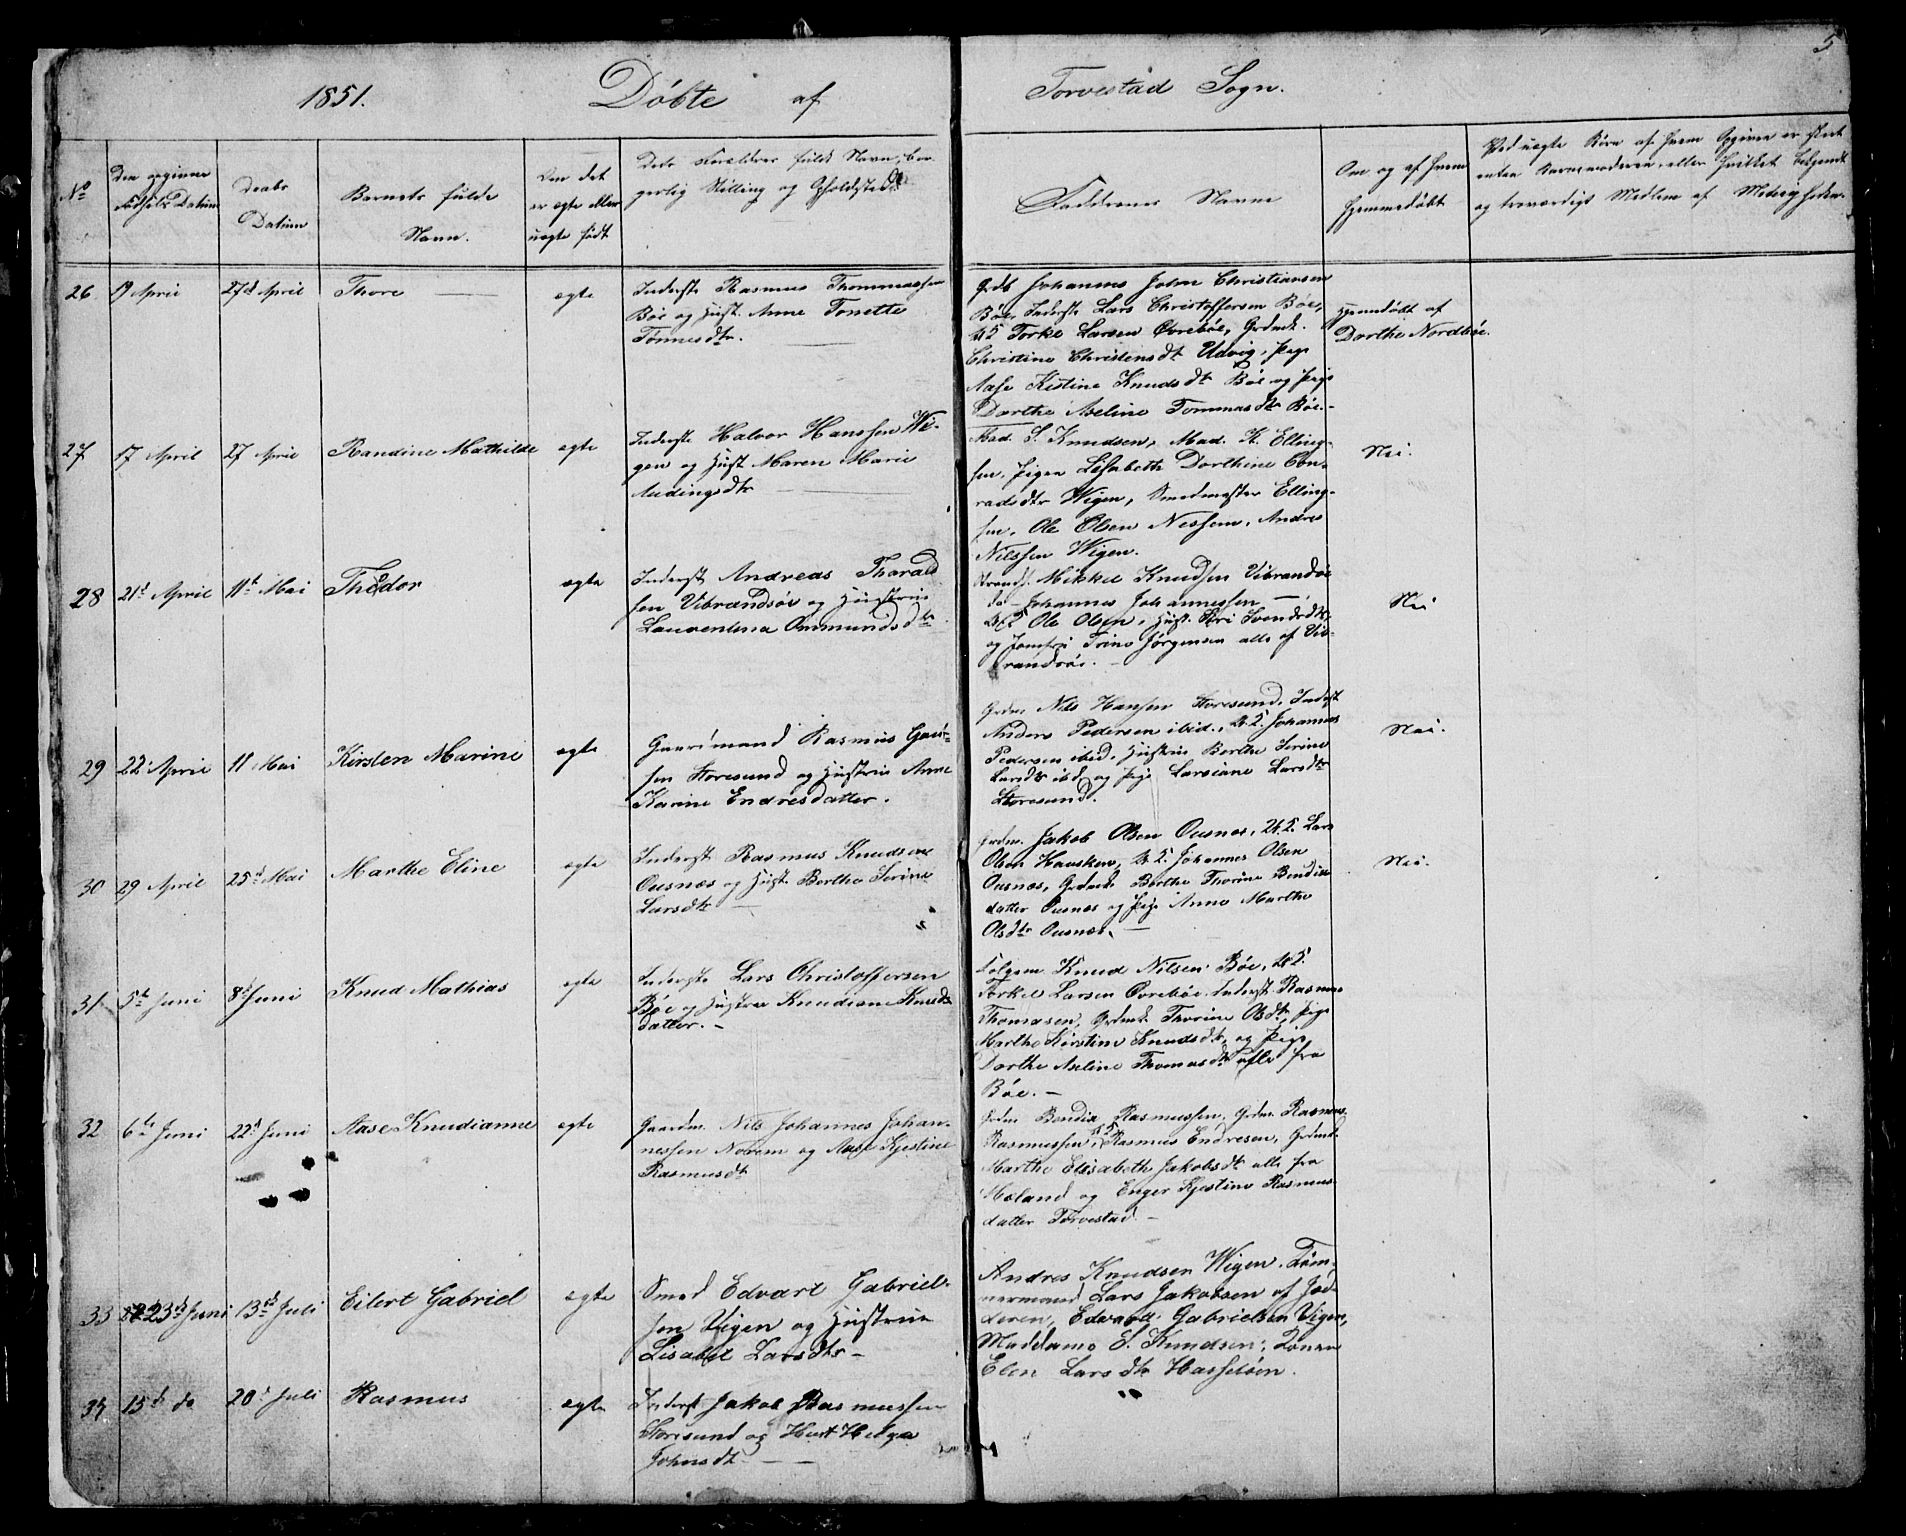 5
1851. Döbte af Torvestad Sogn.
No
Den opgivne Födsels Datum
Daabs Datum
Barnets fulde Navn.
Om det er ægte eller uægte födt
Dets Forældres fulde Navn, borgerlig Stilling og Opholdsted.
Faddrenes Navne
Om og af hvem hjemmedöbt
Ved uægte Börn af hvem Opgiven er skeet
enten Barnemoderen, eller hvilket bekjendt
og troværdigt Medlem af Menigheden.
26 19 April 27d April Thore ægte
Inderst Rasmus Thommassen
Böe og Hust. Anne Tonette
Tönnesdtr.
Grdb Johannes John Christiansen
Böe, Inderst Lars Christoffersen Böe,
Torkel Larsen Övreböe, Grdmk.
Christine Christensdtr Udvig, Pige
Aase Kistine Knudsdtr Böe og Pige
Dorthe Aseline Tommasdtr Böe.
Hjemmedöbt af
Dorthe Nordböe.
27 17 April 27 April Randine Mathilde ægte
Inderste Halvor Hanssen Wi-
gen og Hust. Maren Marie
Audingsdtr
Mad. S. Knudsen, Mad. K. Elling-
sen, Pigen Lisabeth Dorthine Con-
radsdtr Wigen, Smedmester Elling-
sen, Ole Olsen Nessem, Andres
Nilssen Wigen.
Nei.
28 21d April 11t Mai Thedor ægte
Inderst Andreas Thorald
sen Vibrandsöe og Hustrue
Lauventena Ommundsdtr.
Strands. Mikkel Knudsen Vibrandsöe
do - Johannes Johannessen
Ole Olsen, Hust. Siri Svendsdtr,
og Jomfru Trine Jörgensen alle af Vi-
brandsöe.
Nei
29 22d April 11 Mai Kirsten Marine ægte
Gaardmand Rasmus Gaut-
sen Storesund og Hustrue Anne
Karine Endresdatter.
Grdm. Nils Hansen Storesund, Inderst
Anders Pedersen ibid., Johannes
Pedersen ibid, Hustrue Berthe Serine
Larsdtr ibid og Pige Larsiane Larsdtr
Storesund.
Nei.
30 29 April 25d Mai Marthe Eline ægte
Inderst Rasmus Knudsen
Ousnæs og Hust. Berthe Serine
Larsdtr
Grdm. Jakob Olsen Ousnæs, Lars
Olsen Hausken, Johannes Olsen
Ousnæs, Grdmk. Berthe Thorine Bendix
datter Ousnæs og Pige Anne Marthe
Olsdtr Ousnæs.
Nei.
31 5te Juni 8d Juni Knud Mathias ægte
Inderste Lars Christoffersen
Böe og Hustrue Knudiane Knuds
datter.
Knud Nilsen Böe,
Torkel Larsen Övreböe, Inderst Rasmus
Thomasen, Grdmk. Thorine Olsdtr, Pige
Marthe Kirstine Knudsdtr, og Pige
Dorthe Aseline Thomasdtr alle fra
Böe.
32 6te Juni 22d Juni Aase Knudianne ægte
Gaardm. Nils Johannes Johan-
nessen Norem og Aase Kjestine
Rasmusdtr
Grdm Bendix Rasmussen, Grdm. Rasmus
Rasmussen, Rasmus Endresen, Grdmk.
Marthe Elisabeth Jakobsdtr alle fra
Meland og Enger Kjestine Rasmus-
datter Torvestad.
33 23d Juni 13de Juli Eilert Gabriel ægte
Smed Edvart Gabriel-
sen Vigen og Hustrue
Lisabet Larsdtr
Andres Knudsen Wigen, Töm-
mermand Lars Jakobsen af Jæ-
deren, Edvardt Gabrielsen Vigen,
Maddame S. Knudsen,
Elen Larsdtr Hasselöen.
34 15d do 20d Juli Rasmus ægte
Inderst Jakob Rasmussen
Storesund og Hust Helga
Johnsdtr